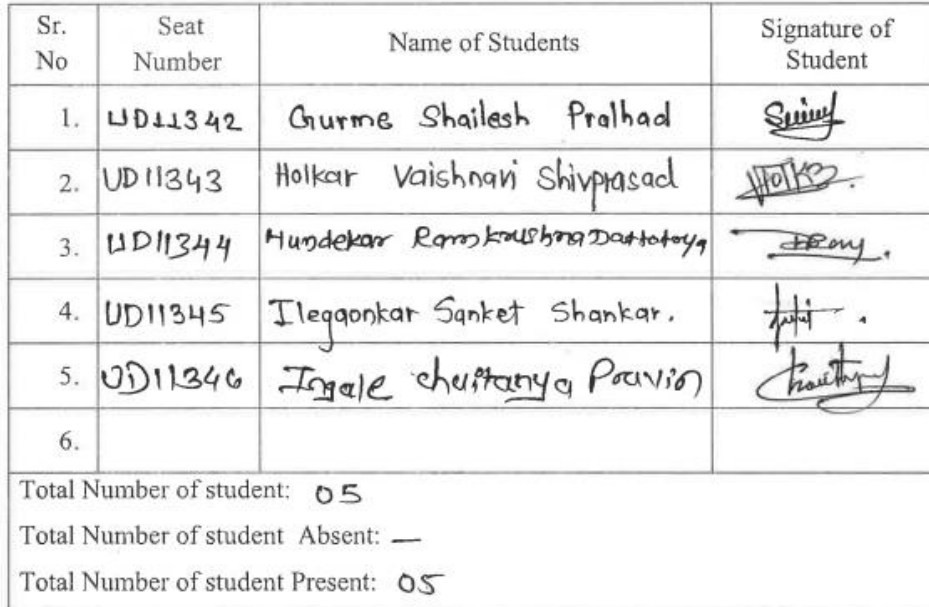 Sr. No Seat Number Name of Students Signature of Student
1. UD11342 Gurme Shailesh Pralhad
2. UD11343 Holkar Vaishnavi Shivprasad Holkar
3. UD11344 Hundekar Ramkrushna Dattatoya
4. UD11345 Ilegaonkar Sanket Shankar.
5. UD11346 Ingale chaitanya Pravin
6.
Total Number of student: 05
Total Number of student Absent: —
Total Number of student Present: 05